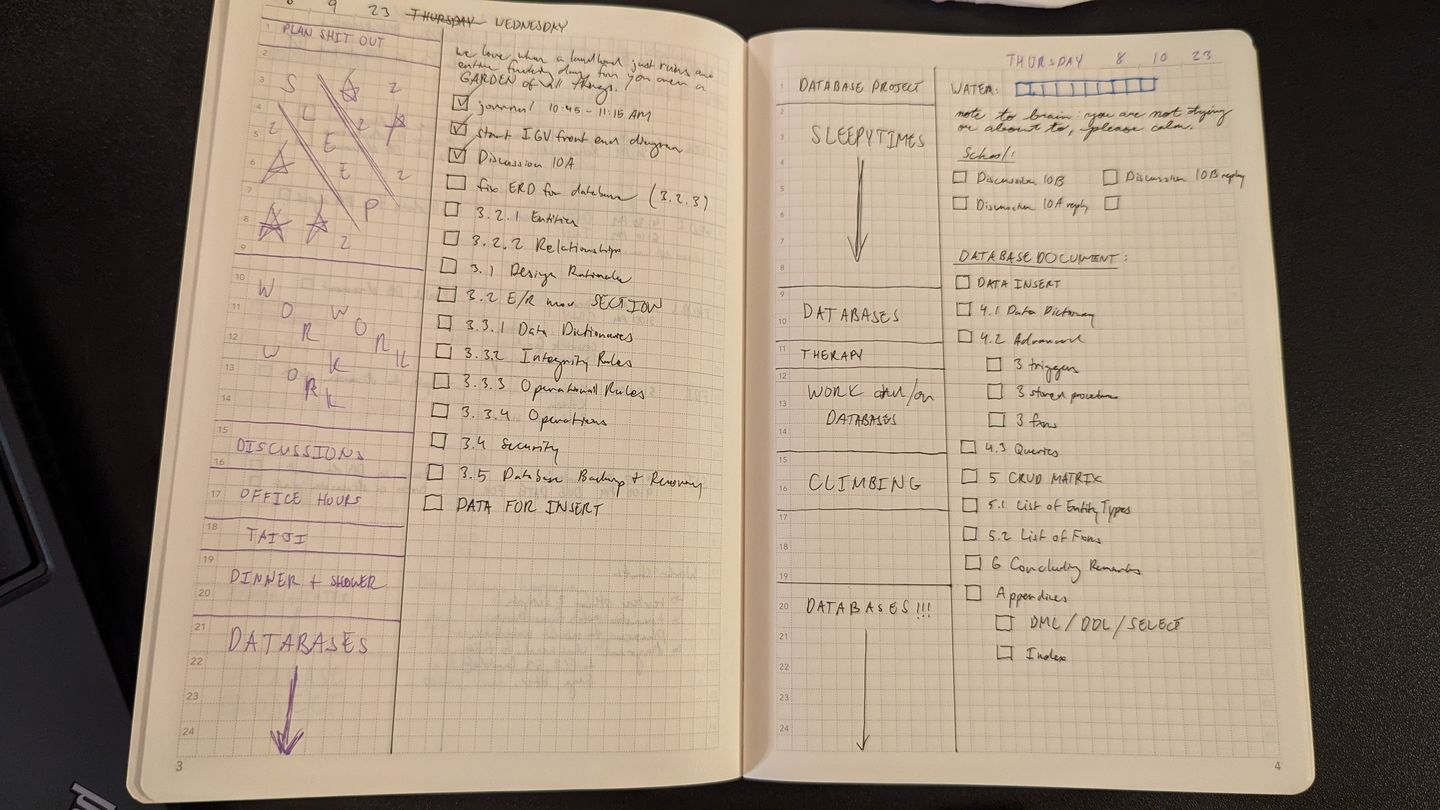 8 9 23 THURSDAY WEDNESDAY
1
PLAN SHIT OUT
2
3
4
5
6
7
8
9
S L E E P
Z Z Z Z Z Z
10
11
12
13
14
WORK
WORK
WORK
15
DISCUSSIONS
16
17
OFFICE HOURS
18
TAIJI
19
DINNER + SHOWER
20
21
DATABASES
22
23
24
3
we love when a landlord just ruins an
entire fucking day for you over a
GARDEN of all things.
journal 10:45 - 11:15 AM
start IGV front end diagram
Discussion 10A
fix ERD for database (3.2.3)
3.2.1 Entities
3.2.2 Relationships
3.1 Design Rationale
3.2 E/R SECTION
3.3.1 Data Dictionaries
3.3.2 Integrity Rules
3.3.3 Operational Rules
3.3.4 Operations
3.4 Security
3.5 Database Backup + Recovery
DATA FOR INSERT
THURSDAY 8 10 23
1
DATABASE PROJECT
2
3
SLEEPYTIMES
4
5
6
7
8
9
DATABASES
10
11
THERAPY
12
13
WORK and/or
DATABASES
14
15
16
CLIMBING
17
18
19
20
DATABASES!!!
21
22
23
24
WATER:
note to brain: you are not dying
or about to, please calm.
School:
Discussion 10B
Discussion 10B reply
Discussion 10A reply
DATABASE DOCUMENT:
DATA INSERT
4.1 Data Dictionary
4.2 Advanced
3 triggers
3 stored procedures
3 fxns
4.3 Queries
5 CRUD MATRIX
5.1 List of Entity Types
5.2 List of Fxns
6 Concluding Remarks
Appendices
DML/DDL/SELECT
Index
4